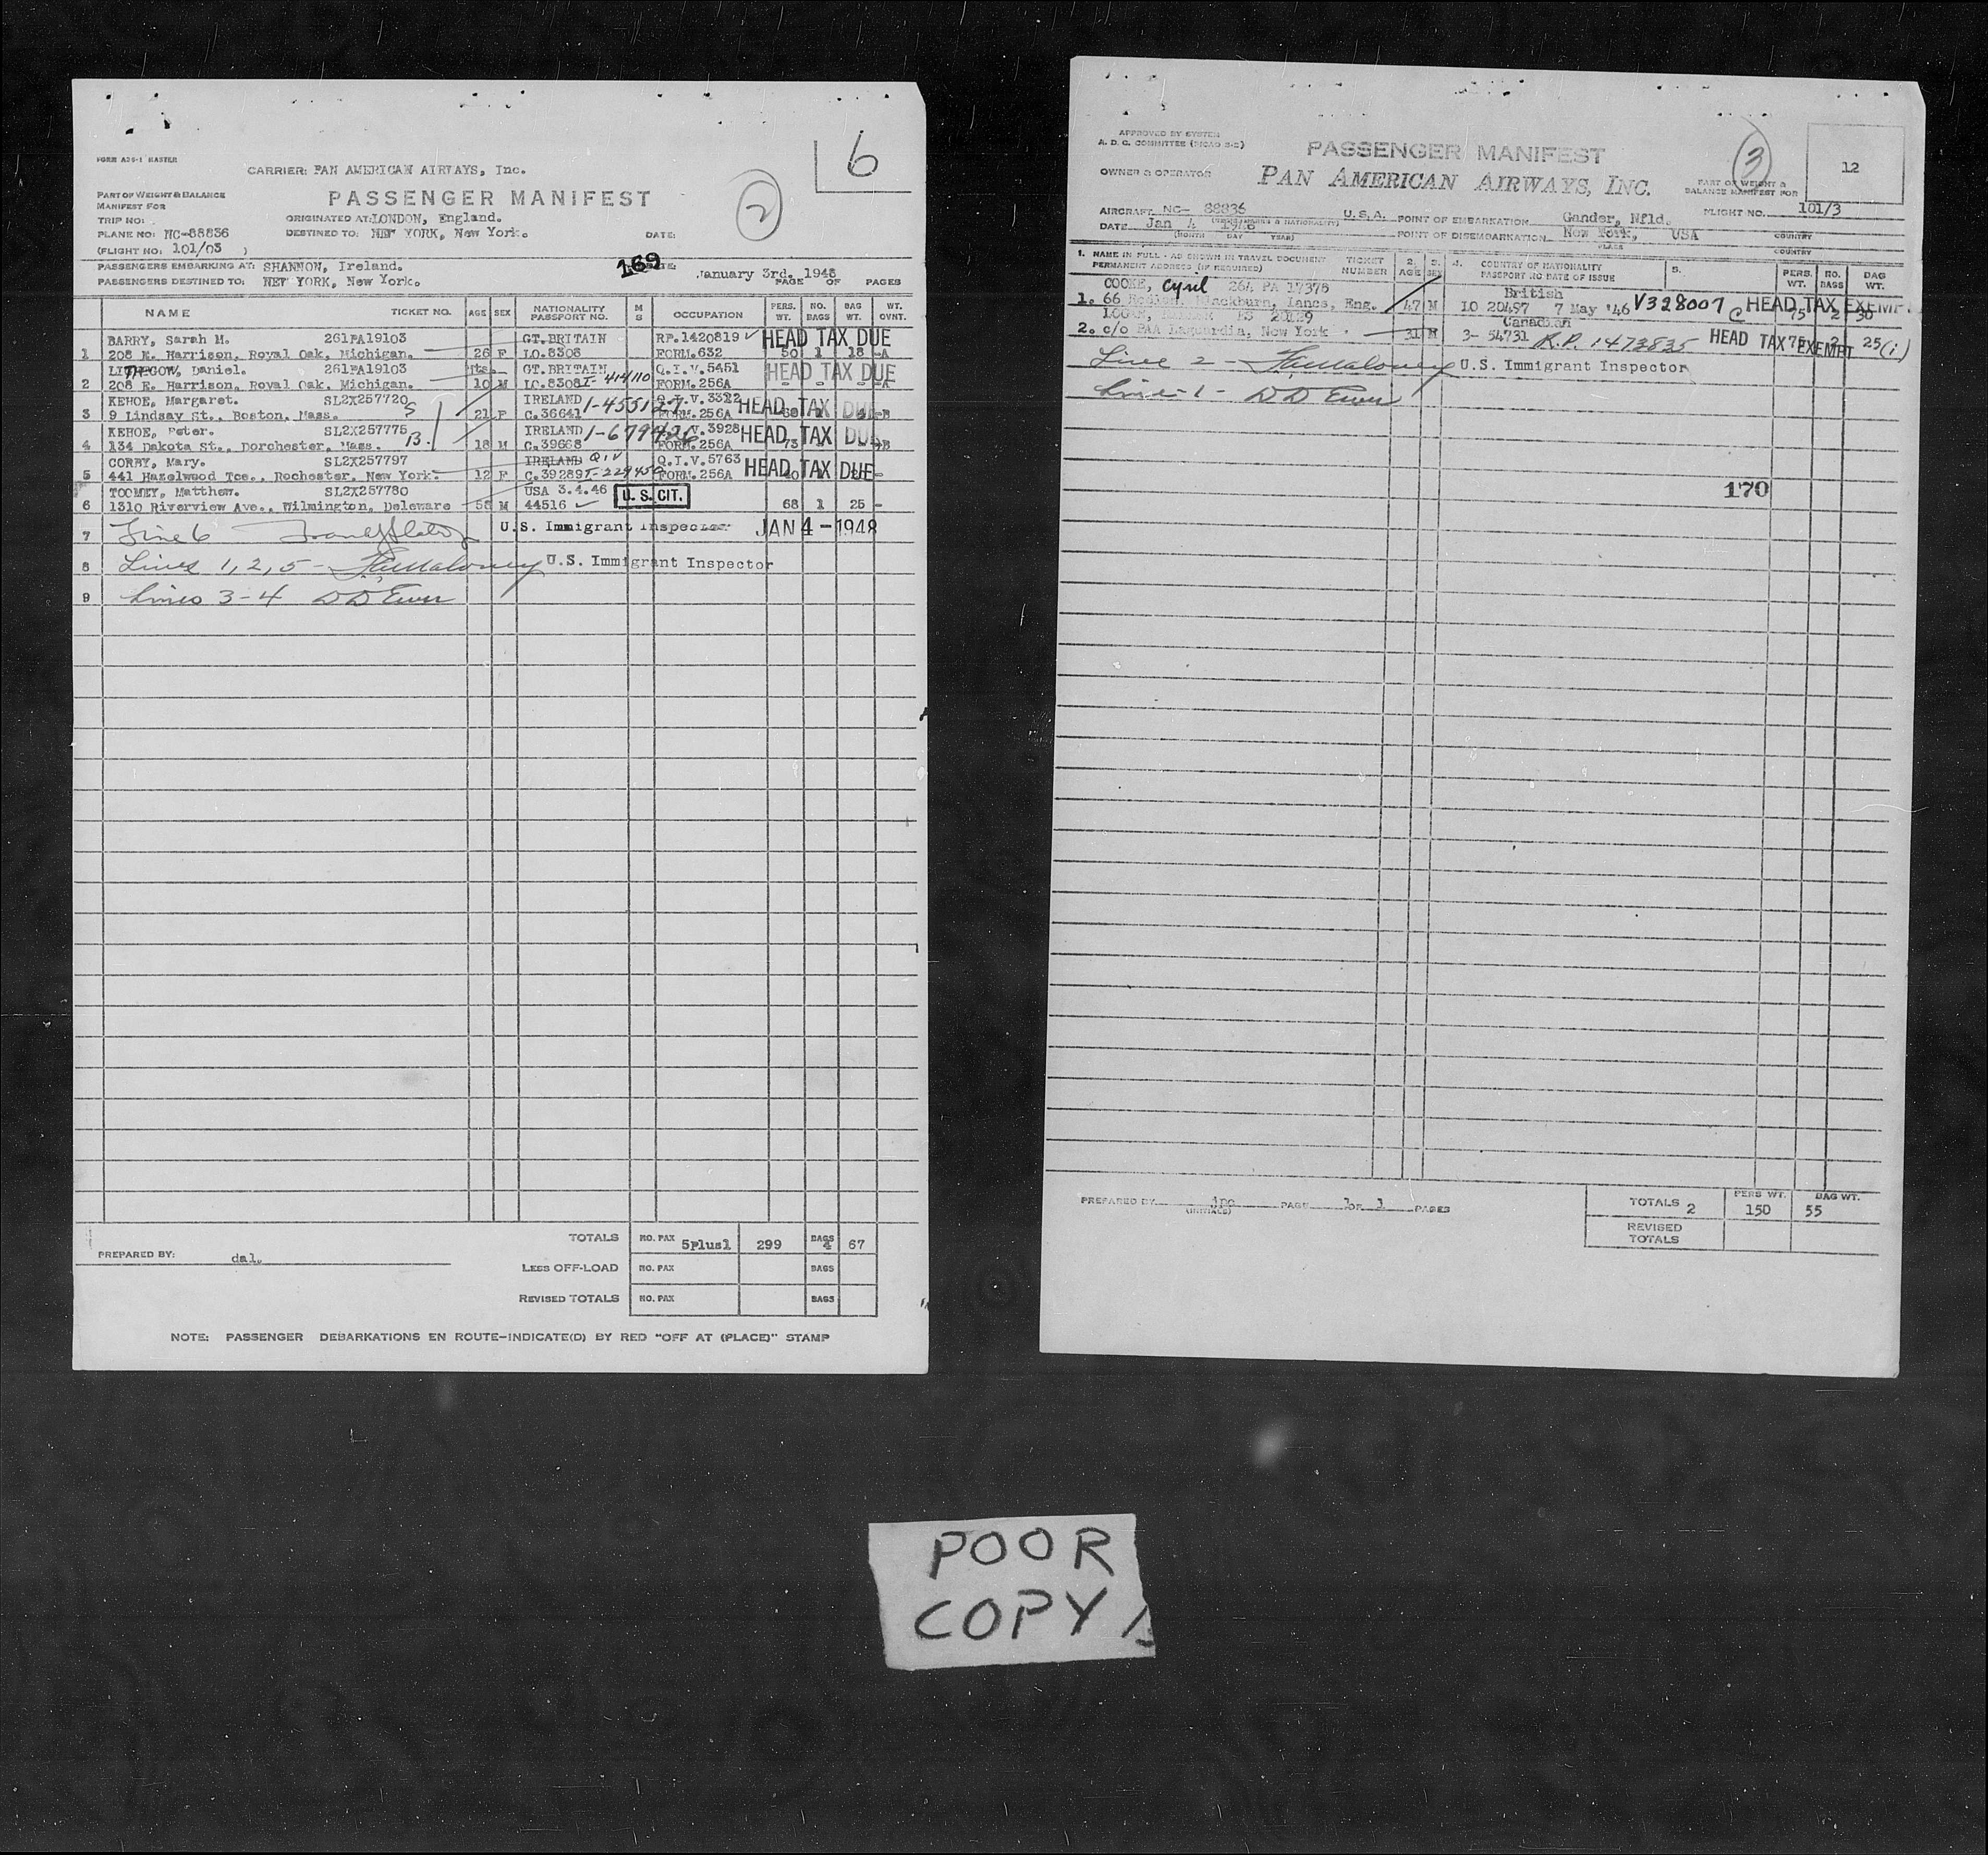 6
FORM A26-1 MASTER
CARRIER: PAN AMERICAN AIRWAYS, Inc.
PART OF WEIGHT & BALANCE
MANIFEST FOR
PASSENGER MANIFEST
2
TRIP NO:
ORIGINATED AT: LONDON, England.
PLANE NO: NC-88836
DESTINED TO: NEW YORK, New York.
DATE:
(FLIGHT NO: 101/03 )
PASSENGERS EMBARKING AT: SHANNON, Ireland.
169
January 3rd. 1948
PASSENGERS DESTINED TO: NEW YORK, New York.
PAGE OF PAGES
NAME TICKET NO. AGE SEX NATIONALITY PASSPORT NO. M S OCCUPATION PERS. WT. NO. BAGS BAG WT. WT. OVNT.
BARRY, Sarah M. 261PA19103 GT.BRITAIN RP.1420819 HEAD TAX DUE
1 208 E. Harrison, Royal Oak, Michigan. 26 F LO.8308 FORM.632 50 1 18 -A
Daniel. 261PA19103 GT.BRITAIN Q.I.V.5451 HEAD TAX DUE
2 208 E. Harrison, Royal Oak, Michigan. 10 M LO.8308 I-414110 FORM.256A
KEHOE, Margaret. SL2X257720 IRELAND Q.I.V.3322 HEAD TAX DUE
3 9 Lindsay St., Boston, Mass. S 21 F C.36641 FORM.256A
KEHOE, Peter. SL2X257775 IRELAND V.3928 HEAD TAX DUE
4 134 Dakota St., Dorchester, Mass. B. 18 M C.39668 1-679426 FORM.256A 73
CORBY, Mary. SL2X257797 IRELAND QIV Q.I.V.5763 HEAD TAX DUE
5 441 Hazelwood Tce., Rochester, New York. 12 F C.39289 I-229450 FORM.256A
TOOMEY, Matthew. SL2X257780 USA 3.4.46 U.S. CIT.
6 1310 Riverview Ave., Wilmington, Deleware 58 M 44516 68 1 25 -
7 Line 6 U.S. Immigrant Inspector JAN 4 - 1948
8 Lines 1, 2, 5 - U.S. Immigrant Inspector
9 Lines 3-4 D D Ewer
TOTALS NO. PAX 5plus1 299 BAGS 4 67
PREPARED BY: dal.
LESS OFF-LOAD NO. PAX BAGS
REVISED TOTALS NO. PAX BAGS
NOTE: PASSENGER DEBARKATIONS EN ROUTE-INDICATE(D) BY RED "OFF AT (PLACE)" STAMP
APPROVED BY SYSTEM
PASSENGER MANIFEST
3
12
OWNER & OPERATOR
PAN AMERICAN AIRWAYS, INC.
PART OF WEIGHT &
BALANCE MANIFEST FOR
AIRCRAFT NC- 88836 U.S.A. POINT OF EMBARKATION Gander, Nfld. FLIGHT NO. 101/3
DATE Jan 4 1948 POINT OF DISEMBARKATION New York, USA COUNTRY
(MONTH DAY YEAR) PLACE COUNTRY
1. NAME IN FULL - AS SHOWN IN TRAVEL DOCUMENT TICKET NUMBER 2. AGE 3. SEX 4. COUNTRY OF NATIONALITY 5. PERS. WT. NO. BAGS BAG WT.
PERMANENT ADDRESS (IF REQUIRED) PASSPORT NO DATE OF ISSUE
COOKE, Cyril 264 PA 17378 British
1. 66 Blackburn, Lancs, Eng. 47 M LO 20497 7 May '46 V328007 C HEAD TAX EXEMPT 75 2 30
LOGAN, 20129 Canadian
2. c/o PAA Laguardia, New York 31 M 3- 54731 R.P. 1473835 HEAD TAX EXEMPT 75 2 25 (i)
Line 2 - U.S. Immigrant Inspector
Line-1- D D Ewer
170
PREPARED BY jpc PAGE 1 OF 1 PAGES
(INITIALS)
TOTALS 2 PERS WT. 150 BAG WT. 55
REVISED TOTALS
POOR
COPY